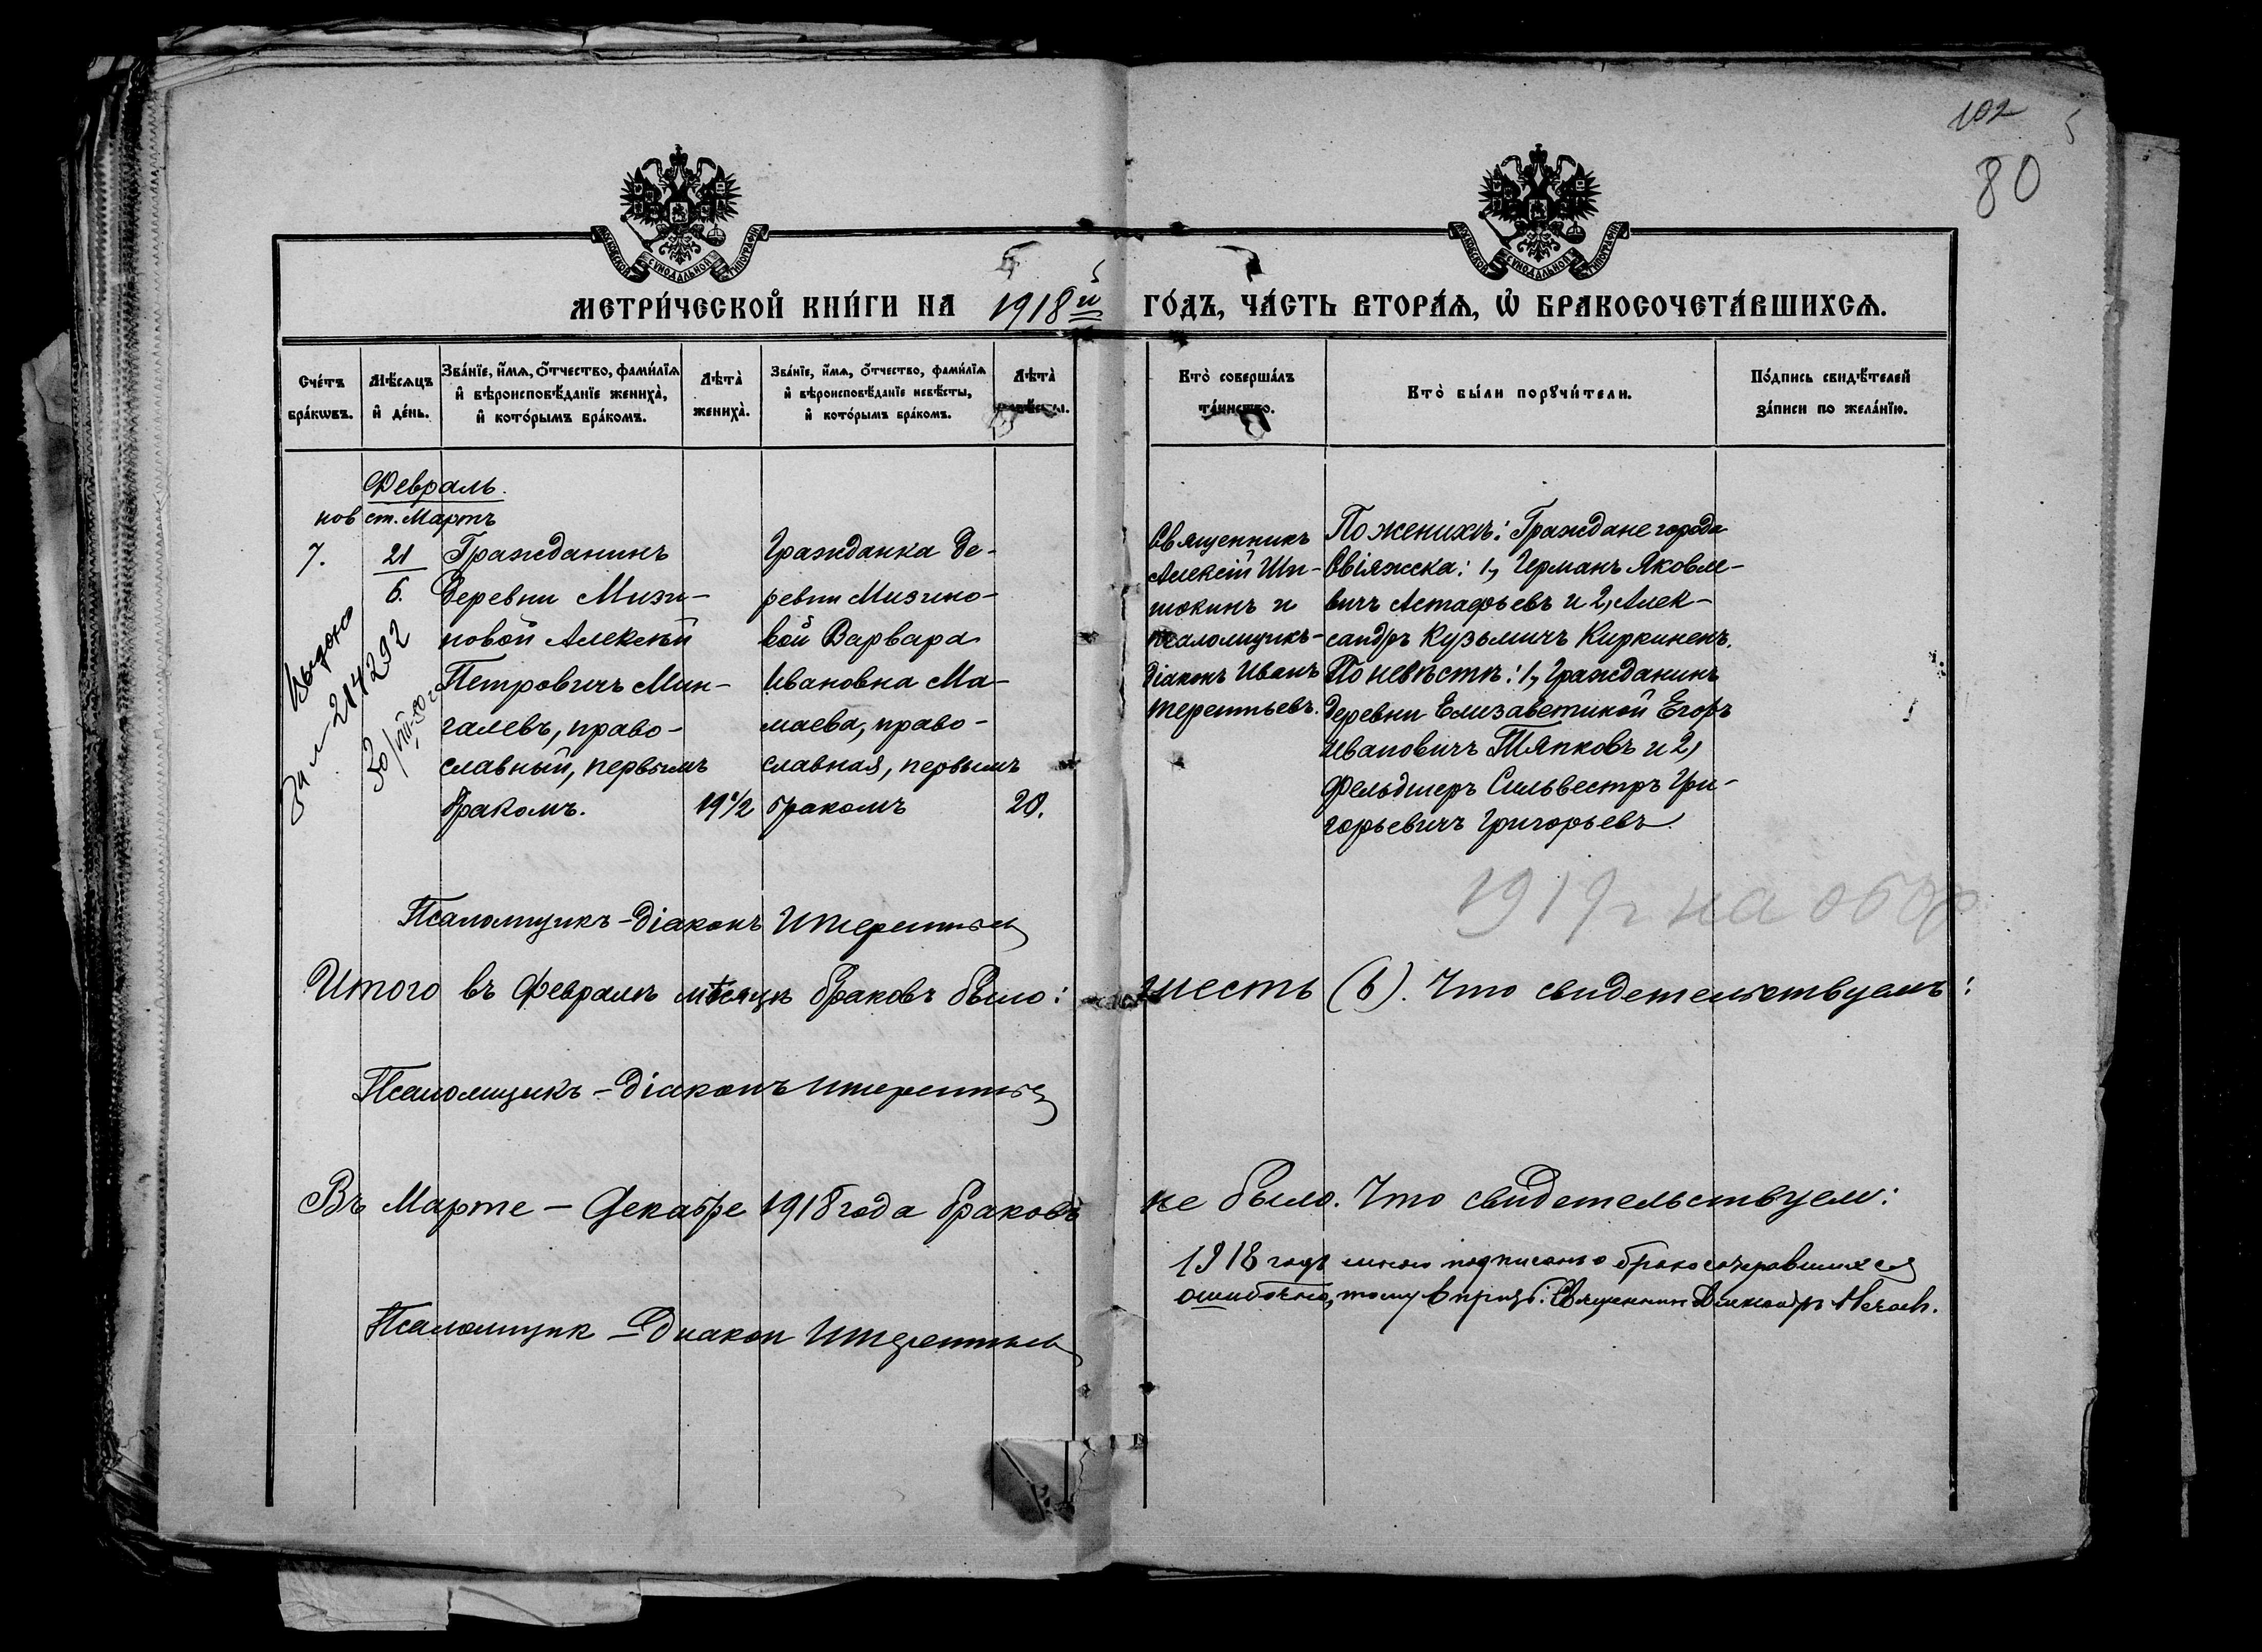 102
80
МОСКОВСКОЙ СѴНОДАЛЬНОЙ ТИПОГРАФІИ
МОСКОВСКОЙ СѴНОДАЛЬНОЙ ТИПОГРАФІИ
МЕТРИ́ЧЕСКОЙ КНИ́ГИ НА 1918й ГО́ДЪ, ЧА́СТЬ ВТОРА́Ѧ, Ѡ҆ БРАКОСОЧЕТА́ВШИХСѦ.
Сче́тъ
бра́кѡвъ.
Мѣ́сѧцъ
и҆ де́нь.
Зва́нїе, и҆́мѧ, ѻ҆́тчество, фами́лїѧ
и҆ вѣроисповѣ́данїе жениха̀,
и҆ кото́рымъ бра́комъ.
Лѣта̀
жениха̀.
Зва́нїе, и҆́мѧ, ѻ҆́тчество, фами́лїѧ
и҆ вѣроисповѣ́данїе невѣ́сты,
и҆ кото́рымъ бра́комъ.
Лѣта̀
невѣ́сты.
Кто̀ соверша́лъ
та́инство.
Кто̀ бы́ли порꙋчи́тели.
По́дпись свидѣ́телей
за́писи по жела́нїю.
Февраль.
нов ст. Мартъ
7.
21
6.
Гражданинъ
деревни Мизи-
новой Алексѣй
Петровичъ Мин-
галевъ, право-
славный, первымъ
бракомъ.
19 1/2
Гражданка де-
ревни Мизино-
вой Варвара
Ивановна Ма-
маева, право-
славная, первымъ
бракомъ
20.
Священникъ
Алексій
и
псаломщикъ-
діаконъ Иванъ
Терентьевъ.
По женихѣ: Граждане города
Свіяжска: 1, Германъ Яковле-
вичъ Астафьевъ и 2, Алек-
сандръ Кузьмичъ Киркиненъ.
По невѣстѣ: 1, Гражданинъ
деревни Елизаветиной Егоръ
Ивановичъ Тяпковъ и 2,
Фельдшеръ Сильвестръ Гри-
горьевичъ Григорьевъ.
214292
1919 г на обор
Псаломщикъ-діаконъ И Терентьев
Итого въ Февралѣ мѣсяцѣ браковъ было: шесть (6). Что свидетельствуемъ:
Псаломщикъ-діаконъ И Терентьев
Въ Марте - Декабре 1918 года браковъ не было. Что свидетельствуем:
1918 годъ мною подписано о бракосочетавшихся
ошибочно, Священник Александръ
Псаломщик - Диакон И Терентьев